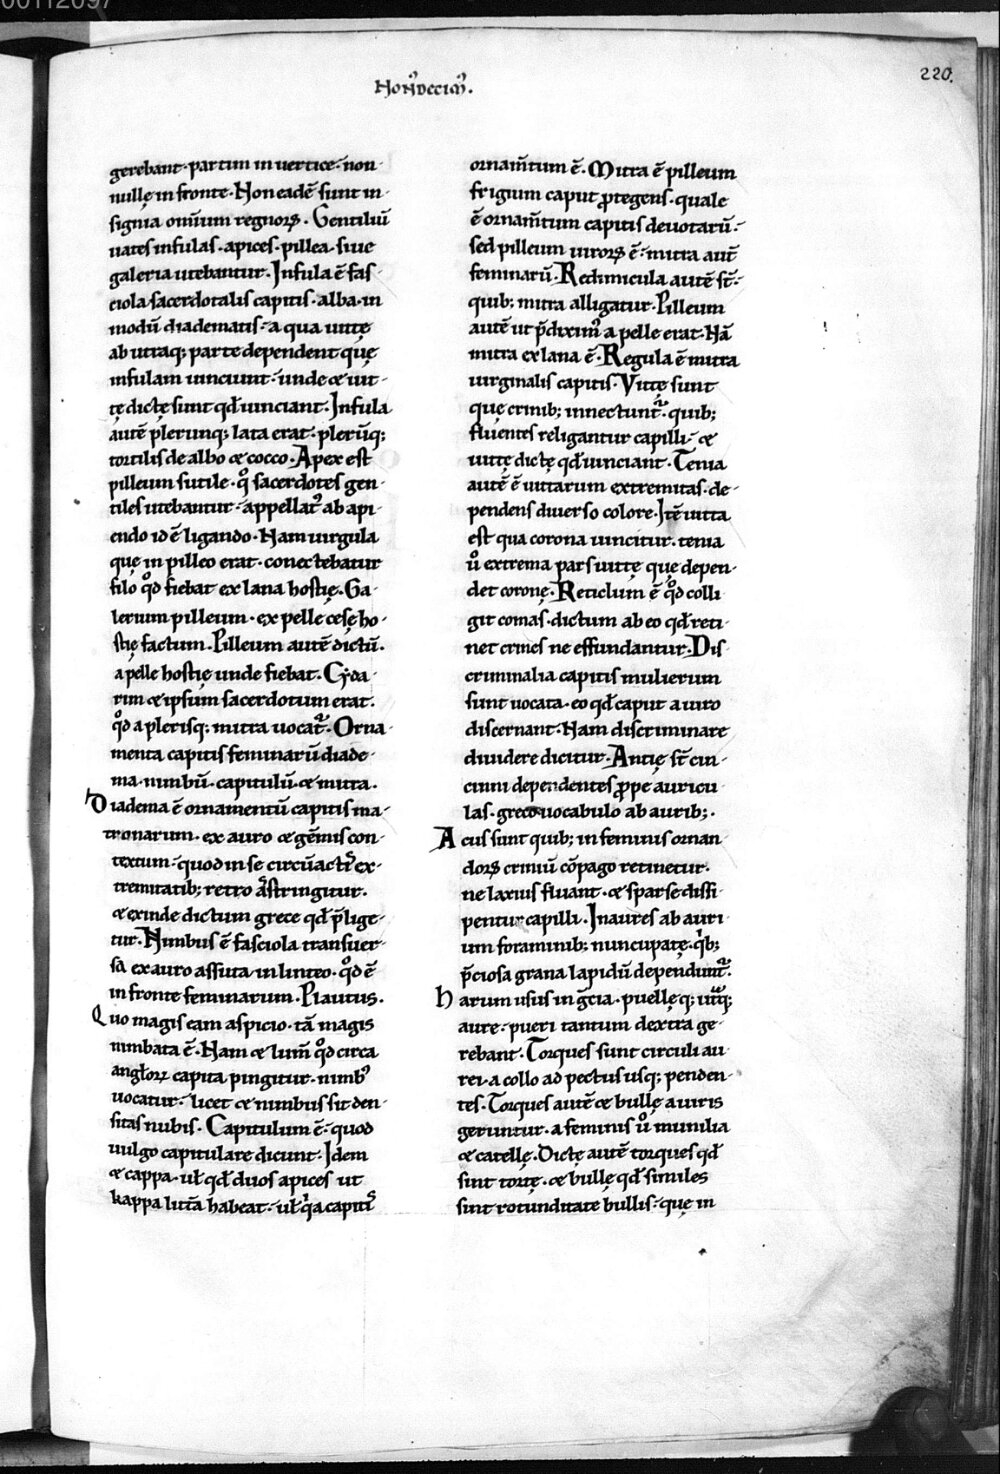 00112697
Nonꝰdecimꝰ.
220.
gerebant· partim in uertice· non-
nullę in fronte· Non eadē sunt in-
signia omīum regnoꝝ. Gentiliū
uates infulas· apices· pillea· siue
galeria utebantur. Infula ē fas-
ciola sacerdotalis capitis· alba· in
modū diadematis· a qua uittę
ab utraq; parte dependent quę
infulam uinciunt· unde & uit-
tę dictę sunt qđ uinciant. Infula
autē plerunq; lata erat· plerūq;
tortilis de albo & cocco. Apex est
pilleum sutile· qͦ sacerdotes gen-
tiles utebantur· appellatꝰ ab api-
endo id ē ligando· Nam uirgula
quę in pilleo erat· conectebatur
filo qͦd fiebat ex lana hostię. Ga-
lerium pilleum· ex pelle cesę ho-
stię factum. Pilleum autē dictū.
a pelle hostię unde fiebat. Cyda-
rim & ipsum sacerdotum erat.
qͦd a plerisq; mitra uocat᷑. Orna-
menta capitis feminarū diade-
ma· nimbū· capitulū & mitra.
Diadema ē ornamentū capitis ma-
tronarum· ex auro & gēmis con-
textum· quod in se circūactis ex-
tremitatib; retro astringitur.
& exinde dictum grece qđ p̄lige-
tur. Nimbus ē fasciola transuer-
sa ex auro assuta in linteo· qͦd ē
in fronte feminarum. Plautus.
Quo magis eam aspicio· tā magis
nimbata ē. Nam & lum̄ qͦd circa
angłoꝝ capita pingitur· nimbꝰ
uocatur· licet & nimbus sit den-
sitas nubis. Capitulum ē· quod
uulgo capitulare dicunt· Idem
& cappa· uł qđ duos apices ut
kappa littā habeat· uł qͥa capitis
ornam̄tum ē. Mitra ē pilleum
frigium caput ꝓtegens· quale
ē ornam̄tum capitis deuotarū·
sed pilleum uiroꝝ ē· mitra aut̄
feminarū. Redimicula autē st̄·
quib; mitra alligatur. Pilleum
autē ut p̄diximꝰ a pelle erat· Nā
mitra ex lana ē. Regula ē mitra
uirginalis capitis. Vittę sunt
quę crinib; innectunt᷑· quib;
fluentes religantur capilli· &
uittę dictę qđ uinciant. Tenia
autē ē uittarum extremitas· de-
pendens diuerso colore. Itē uitta
est qua corona uincitur· tenia
ůo extrema pars uittę quę depen-
det coronę. Reticlum ē qͦd colli
git comas· dictum ab eo qđ reti-
net crines ne effundantur. Dis-
criminalia capitis mulierum
sunt uocata· eo qđ caput auro
discernant· Nam discriminare
diuidere dicitur. Antię st̄ cin-
cinni dependentes ꝓpe auricu
las· greco uocabulo ab aurib;.
Acus sunt quib; in feminis ornan
doꝝ criniū cōpago retinetur.
ne laxius fluant· & sparse dissi-
pentur capilli. Inaures ab auri
um foraminib; nuncupatę· qͥb;
p̄ciosa grana lapidū dependunt᷑.
harum usus in g̃cia· puellę q; utͣq;
aure· pueri tantum dextra ge-
rebant. Torques sunt circuli au
rei· a collo ad pectus usq; penden-
tes. Torques autē & bullę a uiris
geruntur· a feminis ůo munilia
& catellę. Dictę autē torques qđ
sint tortę. & bullę qđ similes
sint rotunditate bullis· quę in